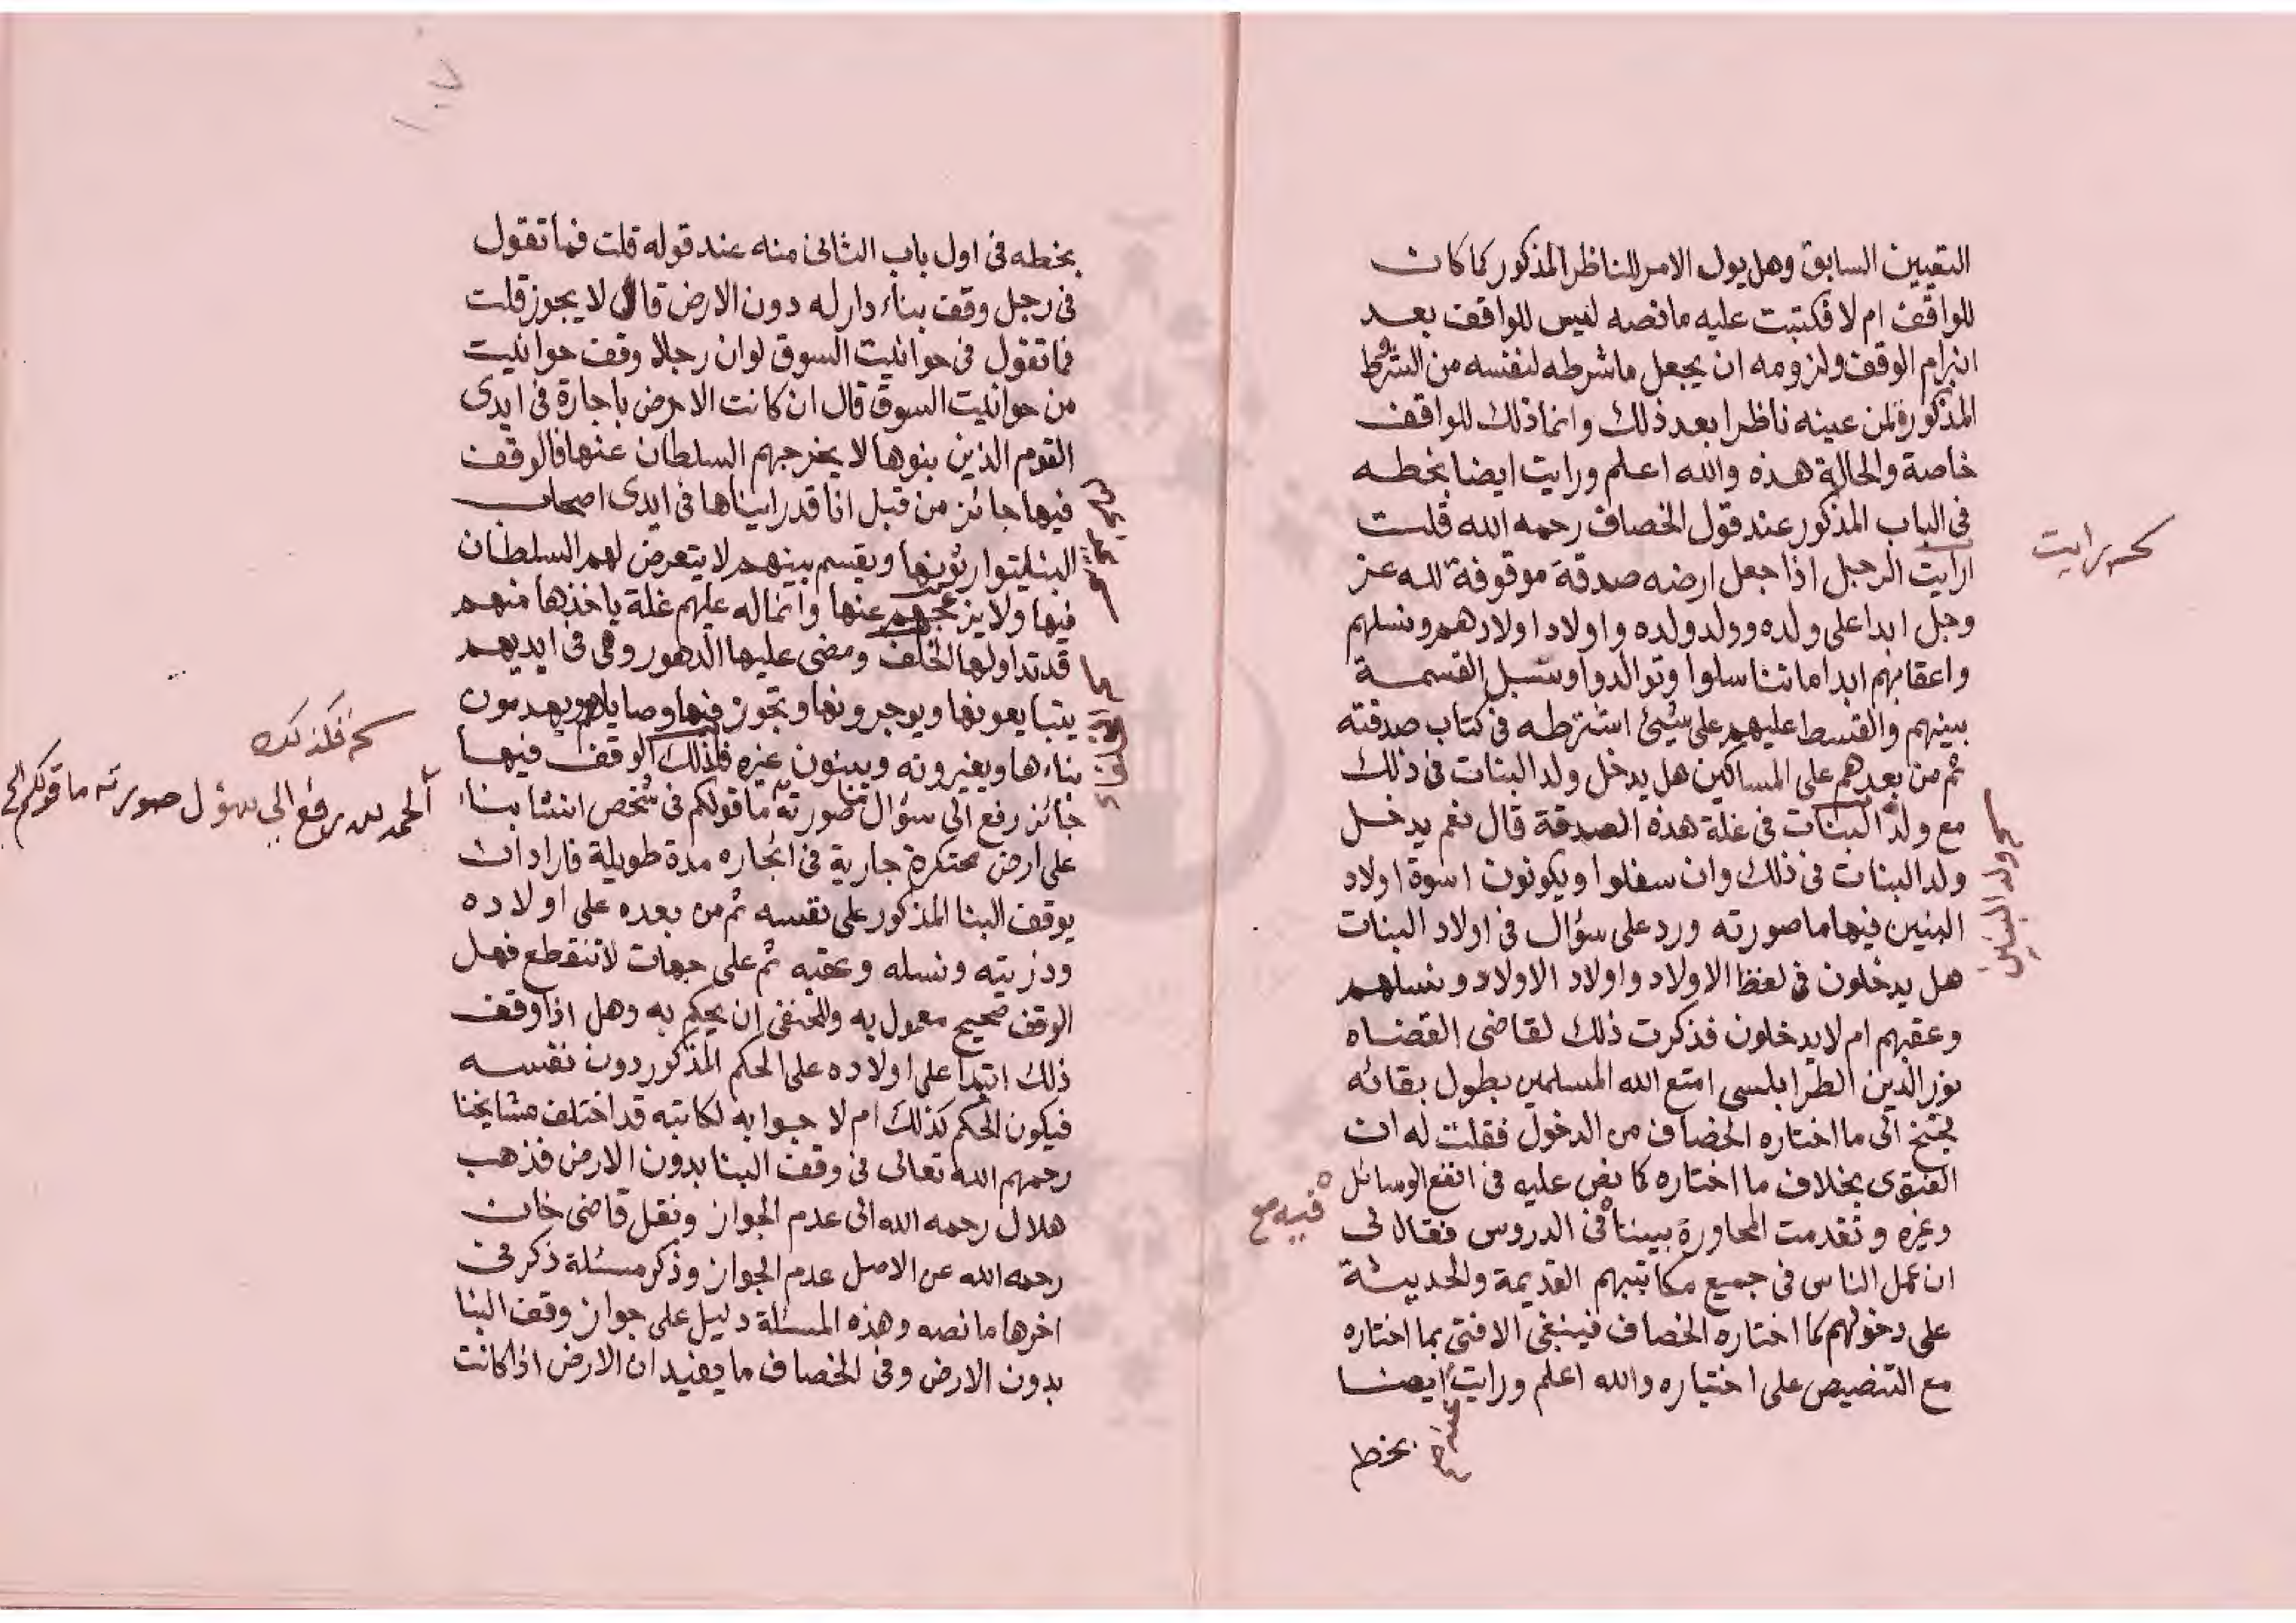 التعيين السابق وهل يول الامر للناظر المذكور كما كان
للواقف ام لا فكتبت عليه ما نصه ليس للواقف بعد
انبرام الوقف ولزومه ان يجعل ما شرطه لنفسه من الشروط
المذكورة لمن عينه ناظرا بعد ذلك وانما ذلك للواقف
خاصة والحالة هذه والله اعلم ورايت ايضا بخطه
فى الباب المذكور عند قول الخصاف رحمه الله قلت
ارايت الرجل اذا جعل ارضه صدقة موقوفة لله عز
وجل ابدا على ولده وولد ولده واولاد اولادهم ونسلهم
واعقابهم ابدا ما تناسلوا وتوالدوا وسبل القسمة
بينهم والقسط عليهم على شيئ اشترطه فى كتاب صدقته
ثم من بعدهم على المساكين هل يدخل ولد البنات فى ذلك
مع ولد البنات فى غلة هذه الصدقة قال نعم يدخل
ولد البنات فى ذلك وان سفلوا ويكونون اسوة اولاد
البنين فيها ما صورته ورد على سؤال فى اولاد البنات
هل يدخلون فى لفظ الاولاد واولاد الاولاد ونسلهم
وعقبهم ام لا يدخلون فذكرت ذلك لقاضى القضاه
نور الدين الطرابلسى امتع الله المسلمين بطول بقائه
فجنح الى ما اختاره الخصاف من الدخول فقلت له ان
الفتوى بخلاف ما اختاره كما نص عليه فى انفع الوسائل
وغيره وتقدمت المحاورة بيننا فى الدروس فقال لى
ان عمل الناس فى جميع مكاتيبهم القديمة والحديثة
على دخولهم كما اختاره الخصاف فينبغى الافتى بما اختاره
مع التنصيص على اختياره والله اعلم ورايت ايضا
بخط
رايت
ولد البنين
فيه صح
١٠٧
بخطه فى اول باب الثانى منه عند قوله قلت فما تقول
فى رجل وقف بناء دار له دون الارض قال لا يجوز قلت
فما تقول فى حوانيت السوق لو ان رجلا وقف حوانيت
من حوانيت السوق قال ان كانت الارض باجارة فى ايدى
القوم الذين بنوها لا يخرجهم السلطان عنها فالوقف
فيها جائز من قبل انا قد رايناها فى ايدى اصحاب
البنا يتوارثونها ويقسم بينهم لا يتعرض لهم السلطان
فيها ولا يزعجهم عنها وانما له عليهم غلة ياخذها منهم
قد تداولها الخلف ومضى عليها الدهور وهى فى ايديهم
يتبايعونها ويوجرونها وتجوز فيها وصاياهم ويهدمون
بناءها ويغيرونه ويبنون غيره فلذلك الوقف فيها
جائز رفع الى سؤال صورته ما قولكم فى شخص انشا بناء
على ارض محتكرة جارية فى ايجاره مدة طويلة فاراد ان
يوقف البنا المذكور على نفسه ثم من بعده على اولاده
وذريته ونسله وعقبه ثم على جهات لا تنقطع فهل
الوقف صحيح معمول به وللحنفى ان يحكم به وهل اذا وقف
ذلك ابتدا على اولاده على الحكم المذكور دون نفسه
فيكون الحكم كذلك ام لا جوابه لكاتبه قد اختلف مشايخنا
رحمهم الله تعالى فى وقف البنا بدون الارض فذهب
هلال رحمه الله الى عدم الجواز ونقل قاضى خان
رحمه الله عن الاصل عدم الجواز وذكر مسئلة ذكر فى
اخرها ما نصه وهذه المسئلة دليل على جواز وقف البنا
بدون الارض وفى الخصاف ما يفيد ان الارض اذا كانت
فكذلك
الحمد لله رفع الى سؤل صورته ما قولكم الخ